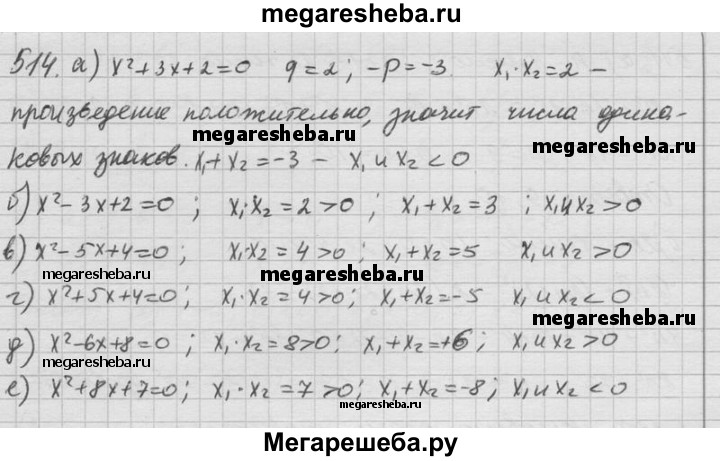 megaresheba.ru
514. а) x²+3x+2=0 q=2; -p=-3. x₁·x₂=2 -
произведение положительно, значит числа одина-
megaresheba.ru
megaresheba.ru
ковых знаков. x₁+x₂=-3 - x₁ и x₂<0
б) x²-3x+2=0 ; x₁·x₂=2>0 ; x₁+x₂=3 ; x₁ и x₂>0
в) x²-5x+4=0 ; x₁·x₂=4>0 ; x₁+x₂=5 x₁ и x₂>0
megaresheba.ru
megaresheba.ru
г) x²+5x+4=0; x₁·x₂=4>0; x₁+x₂=-5 x₁ и x₂<0
megaresheba.ru
д) x²-6x+8=0 ; x₁·x₂=8>0; x₁+x₂=+6; x₁ и x₂>0
е) x²+8x+7=0; x₁·x₂=7>0; x₁+x₂=-8; x₁ и x₂<0
megaresheba.ru
Мегарешеба.ру